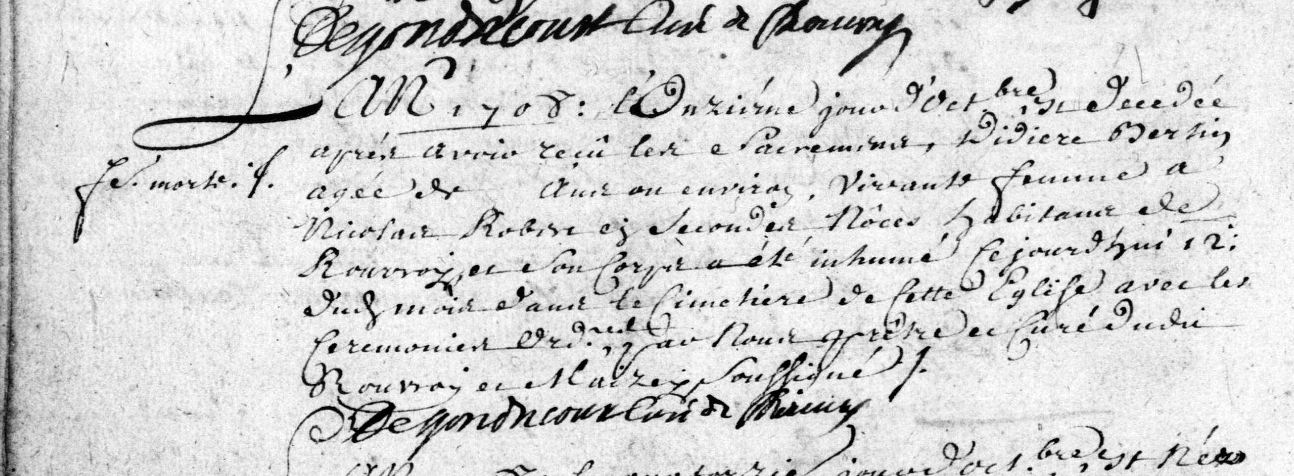 Degondrecourt Curé de Rouvroy
An 1708: l'Onziéme jour d'Oct.bre est decedée
aprés avoir reçû les Sacremens, Didiere Bertin
agée de Ans ou environ, vivante femme a
fe. morte. f.
Nicolas Robert en Secondes Nôces habitans de
Rouvroy, et Son Corps a été inhumé Cejourd'hui 12:
dud mois dans le Cimetiere de Cette Eglise avec les
Ceremonies Ord. par Nous prêtre et Curé dudit
Rouvroy et Maizey Soussigné
Degondrecour Curé de Rouvroy
jour d'Oct.bre est Née